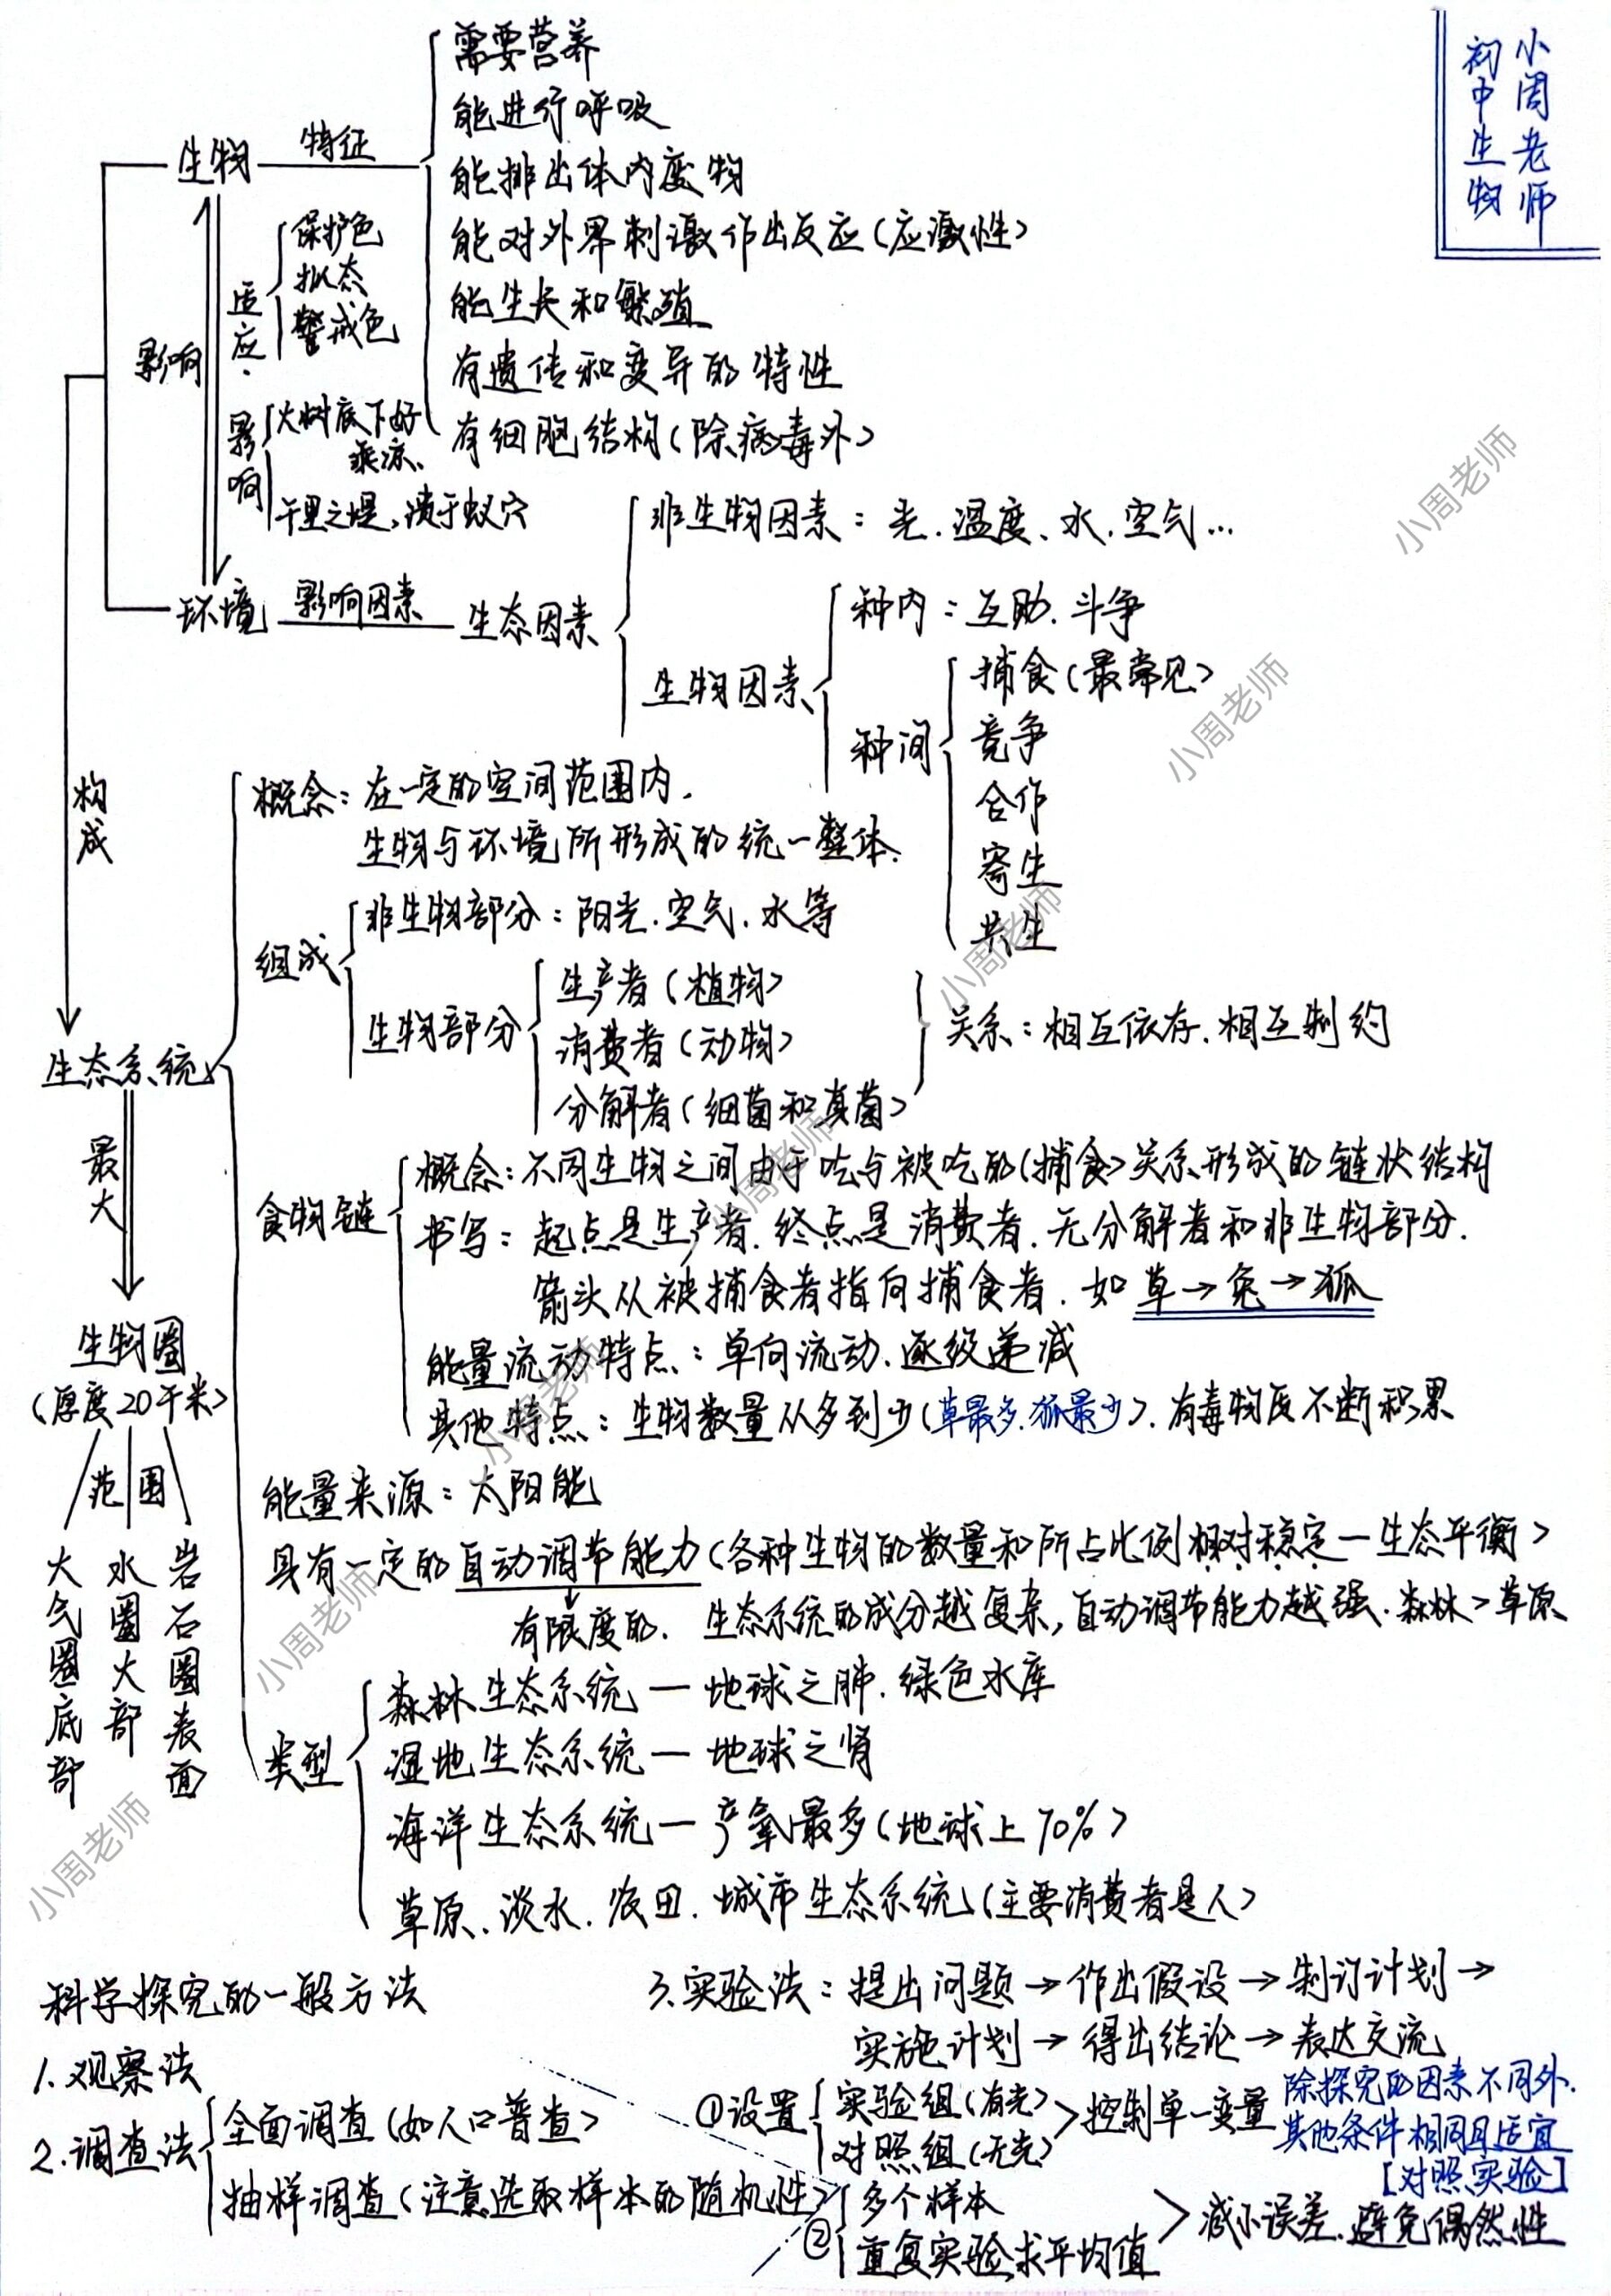 小周老师
初中生物
需要营养
能进行呼吸
生物 特征
能排出体内废物
能对外界刺激作出反应(应激性)
能生长和繁殖
有遗传和变异的特性
有细胞结构(除病毒外)
影响
适应
保护色
拟态
警戒色
影响
大树底下好
乘凉、
千里之堤,溃于蚁穴
环境 影响因素 生态因素
非生物因素:光.温度、水.空气…
生物因素
种内:互助.斗争
种间
捕食(最常见)
竞争
合作
寄生
共生
构成
生态系统
概念:在一定的空间范围内,
生物与环境所形成的统一整体.
组成
非生物部分:阳光.空气.水等
生物部分
生产者(植物)
消费者(动物)
分解者(细菌和真菌)
关系:相互依存.相互制约
食物链
概念:不同生物之间由于吃与被吃的(捕食)关系形成的链状结构
书写:起点是生产者.终点是消费者.无分解者和非生物部分.
箭头从被捕食者指向捕食者.如草→兔→狐
能量流动特点:单向流动、逐级递减
其他特点:生物数量从多到少(草最多.狐最少).有毒物质不断积累
能量来源:太阳能
具有一定的自动调节能力(各种生物的数量和所占比例相对稳定—生态平衡)
有限度的. 生态系统的成分越复杂,自动调节能力越强.森林>草原
类型
森林生态系统—地球之肺.绿色水库
湿地生态系统—地球之肾
海洋生态系统—产氧最多(地球上70%)
草原、淡水.农田.城市生态系统(主要消费者是人)
最大
生物圈
(厚度20千米)
范围
大气圈底部
水圈大部
岩石圈表面
科学探究的一般方法
1.观察法
2.调查法
全面调查(如人口普查)
抽样调查(注意选取样本的随机性)
3.实验法:提出问题→作出假设→制订计划→
实施计划→得出结论→表达交流
①设置
实验组(有光)
对照组(无光)
>控制单一变量
除探究的因素不同外.
其他条件相同且适宜
[对照实验]
②
多个样本
重复实验求平均值
>减小误差.避免偶然性
小周老师
小周老师
小周老师
小周老师
小周老师
小周老师
小周老师